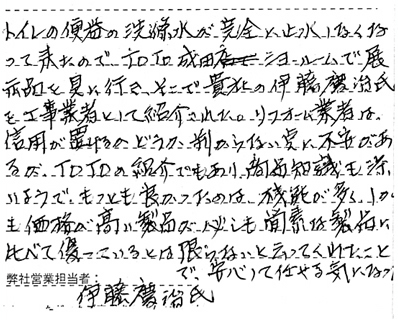 トイレの便器の洗滌水が完全に止水しなくな
って来たので、TOTO成田ショールームで展
示品を見に行き、そこで貴社の伊藤慶治氏
を工事業者として紹介された。リフォーム業者は、
信用が置けるかどうか判らない実に不安があ
るが、TOTOの紹介でもあり、商品知識も深
いようで、もっとも良かったのは、機能が多く、しか
も価格が高い製品が必ずしも簡素な製品に
比べて優っているとは限らないと云ってくれたこと
で、安心して任せる気になった
弊社営業担当者：
伊藤慶治氏